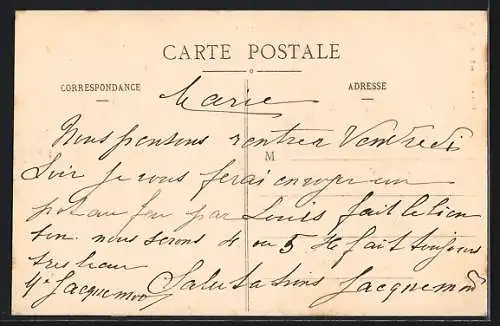 CARTE POSTALE
CORRESPONDANCE
ADRESSE
Marie
Nous pensons rentrer Vendredi
M
Soir je vous ferai envoyer un
pot au feu par Louis fait le bien
nous serons 4 ou 5 Il fait toujours
tres beau
Salutations Jacquemod
Jacquemod